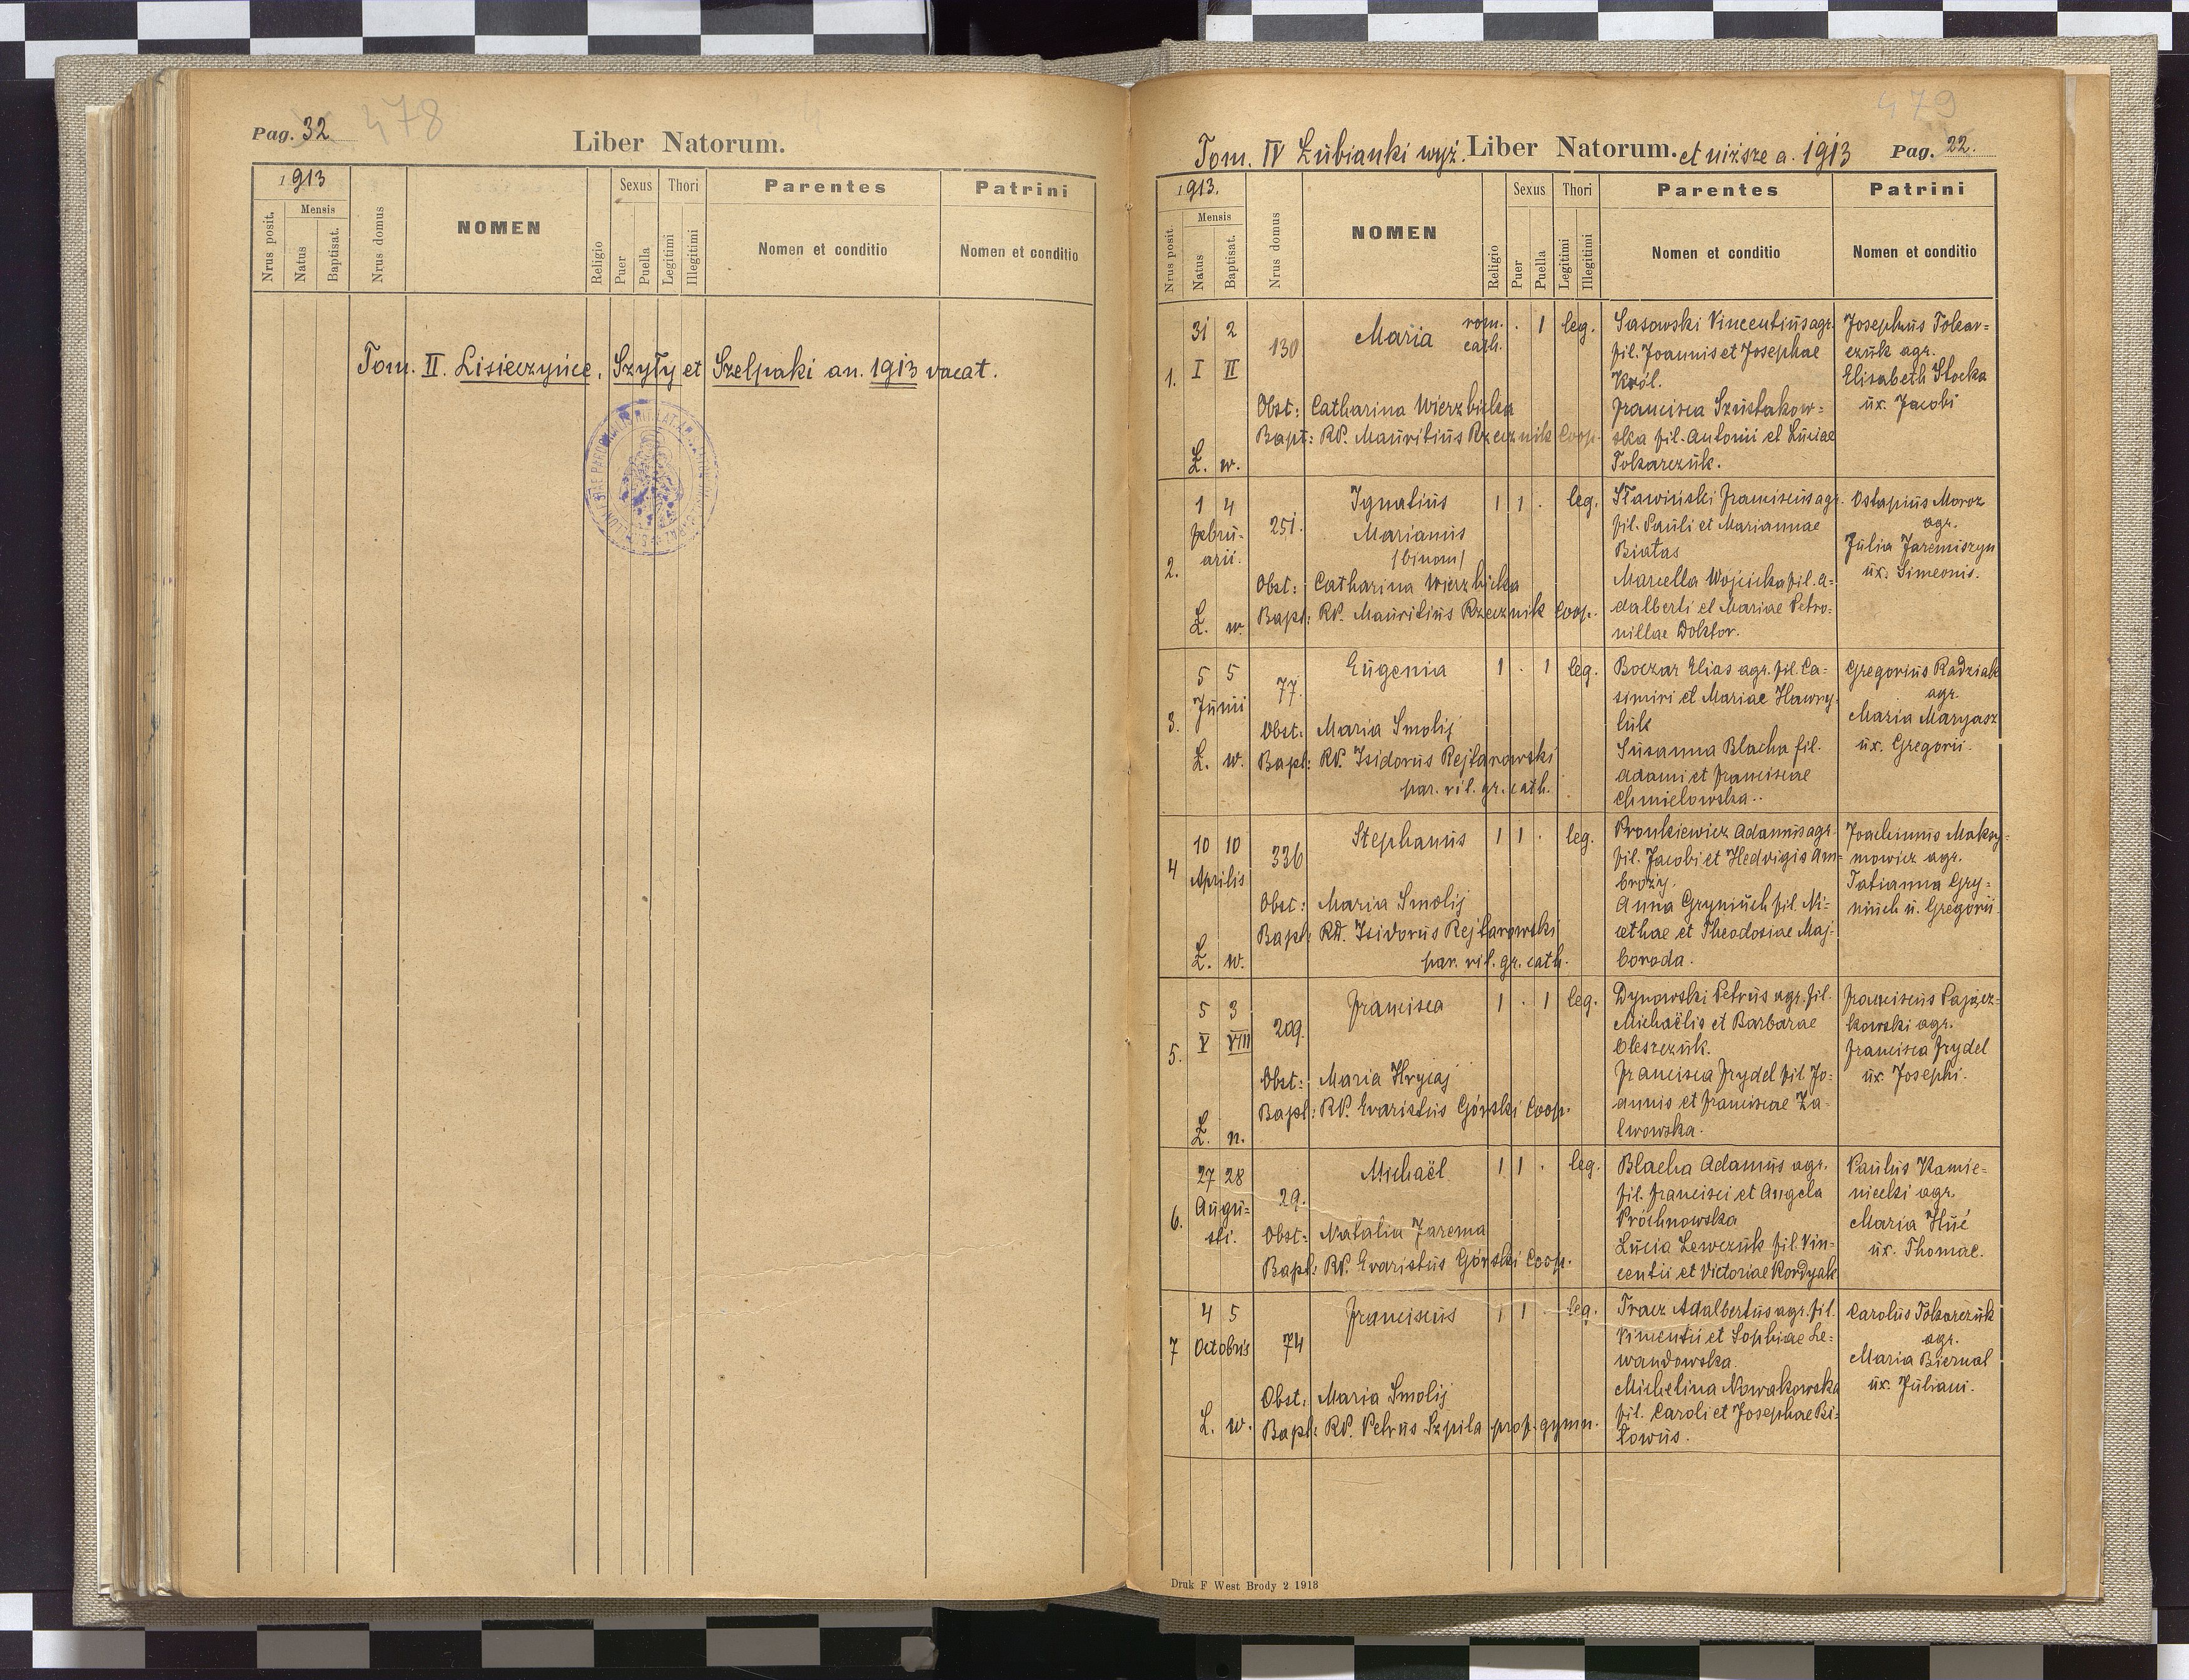 Pag. 32
478
Liber Natorum.
1913
Nrus posit.
Mensis
Natus
Baptisat.
Nrus domus
NOMEN
Religio
Sexus
Puer
Puella
Thori
Legitimi
Illegitimi
Parentes
Nomen et conditio
Patrini
Nomen et conditio
Tom. II. Lisieczyńce, Szyły et Szelpaki an. 1913 vacat.
479
Tom. IV Łubianki wyż. Liber Natorum. et niższe a. 1913 Pag. 22.
1913.
Nrus posit.
Mensis
Natus
Baptisat.
Nrus domus
NOMEN
Religio
Sexus
Puer
Puella
Thori
Legitimi
Illegitimi
Parentes
Nomen et conditio
Patrini
Nomen et conditio
1.
31 2
I II
130
Maria
rom.
cath.
. 1 leg.
Obst: Catharina Wierzbicka
Bapt: RP. Mauritius Rzecznik Coop.
Ł. w.
Sasowski Vincentius agr.
fil. Joannis et Josephae
Król.
Francisca Szustakow=
ska fil. Antonii et Luciae
Tokarczuk.
Josephus Tokar=
czuk agr.
Elisabeth Stocka
ux. Jacobi
2.
1 4
Febru-
arii.
251.
Ignatius
Marianus
/binom/
1 1 . leg.
Obst: Catharina Wierzbicka
Bapt: RP. Mauritius Rzecznik Coop.
Ł. w.
Sławiński Franciscus agr.
fil. Pauli et Mariannae
Białas
Marcella Wójcicka fil. A=
dalberti et Mariae Petro=
nillae Doktor.
Ostapius Moroz
agr.
Julia Jaremiszyn
ux. Simeonis.
3.
5 5
Junii
77.
Eugenia
1 . 1 leg.
Obst. Maria Smolij
Bapt: RP. Isidorus Rejtarowski
par. rit. gr. cath.
Ł. w.
Boczar Elias agr. fil. Ca=
simiri et Mariae Hawry-
luk
Susanna Blacha fil.
Adami et Franciscae
Chmielowska..
Gregorius Radziak
agr.
Maria Maryasz
ux. Gregorii.
4
10 10
Aprilis
336
Stephanus
1 1 . leg.
Obst: Maria Smolij
Bapt: RP. Isidorus Rejtarowski
par. rit. gr. cath.
Ł. w.
Pronkiewicz Adamus agr.
fil. Jacobi et Hedvigis Am=
broży.
Anna Gryniuch fil. Ni=
cethae et Theodosiae Maj-
boroda.
Joachimus Maksy=
mowicz agr.
Tatianna Gry=
niuch u. Gregorii.
5.
5 3
V VIII
209.
Francisca
1 . 1 leg.
Obst: Maria Hrycaj
Bapt: RP. Evaristus Górski Coop.
Ł. n.
Dynowski Petrus agr. fil.
Michaëlis et Barbarae
Oleszczuk.
Francisca Frydel fil. Jo-
annis et Franciscae Za-
lwowska.
Franciscus Pającz=
kowski agr.
Francisca Frydel
ux. Josephi.
6.
27 28
Augu=
sti.
29.
Michaël
1 1 . leg.
Obst: Natalia Jarema
Bapt: RP. Evaristus Górski Coop.
Blacha Adamus agr.
fil. Francisci et Angela
Próchnowska
Lucia Lewczuk fil. Vin-
centii et Victoriae Kordyak
Paulus Kamie=
niecki agr.
Maria Huć
ux. Thomae.
7
4 5
Octobris
74
Franciscus
1 1 . leg.
Obst. Maria Smolij
Bapt: RP. Petrus Szpila prof. gymn.
Ł. w.
Tracz Adalbertus agr. fil.
Vincentii et Sophiae Le=
wandowska.
Michelina Nowakowska
fil. Caroli et Josephae Bi=
łowus.
Carolus Tokarczuk
agr.
Maria Biernat
ux. Juliani.
Druk F West Brody 2 1913